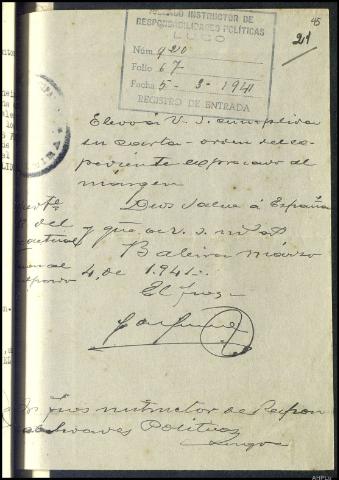 45
JUZGADO INSTRUCTOR DE
RESPONSABILIDADES POLÍTICAS
LUGO
21
Núm. 920
Folio 67
Fecha 5-3-1941
REGISTRO DE ENTRADA
Elevo á V. S. cumplida
su carta-orden del ex-
pediente expresado al
márgen
Dios salve á España
y que a V. S.
Baleira márzo
4 de 1.941.
El Juez
Sr. Juez instructor de Respon
sabilidades Políticas
Lugo
AHPLu